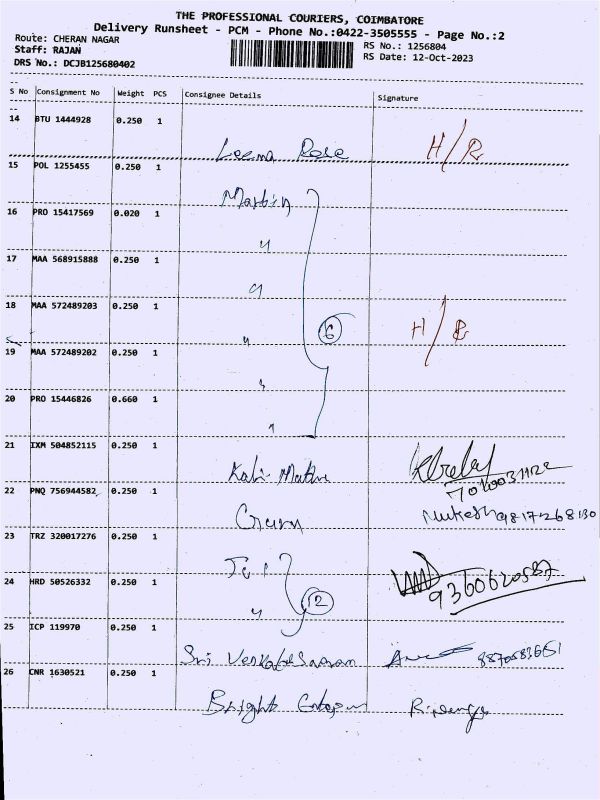 THE PROFESSIONAL COURIERS, COIMBATORE
Delivery Runsheet - PCM - Phone No.:0422-3505555 - Page No.:2
Route: CHERAN NAGAR
RS No.: 1256804
Staff: RAJAN
RS Date: 12-Oct-2023
DRS No.: DCJB125680402
S No Consignment No Weight PCS Consignee Details Signature
14 BTU 1444928 0.250 1
Leema Rose H/R
15 POL 1255455 0.250 1
Martin
16 PRO 15417569 0.020 1
"
17 MAA 568915888 0.250 1
"
18 MAA 572489203 0.250 1
" 6 H/R
19 MAA 572489202 0.250 1
"
20 PRO 15446826 0.660 1
"
21 IXM 504852115 0.250 1
22 PNQ 756944582 0.250 1
Mukesh 9817268130
23 TRZ 320017276 0.250 1
24 HRD 50526332 0.250 1
" 2 9360620587
25 ICP 119970 0.250 1
Sri Venkateswaran
26 CNR 1630521 0.250 1
Bright